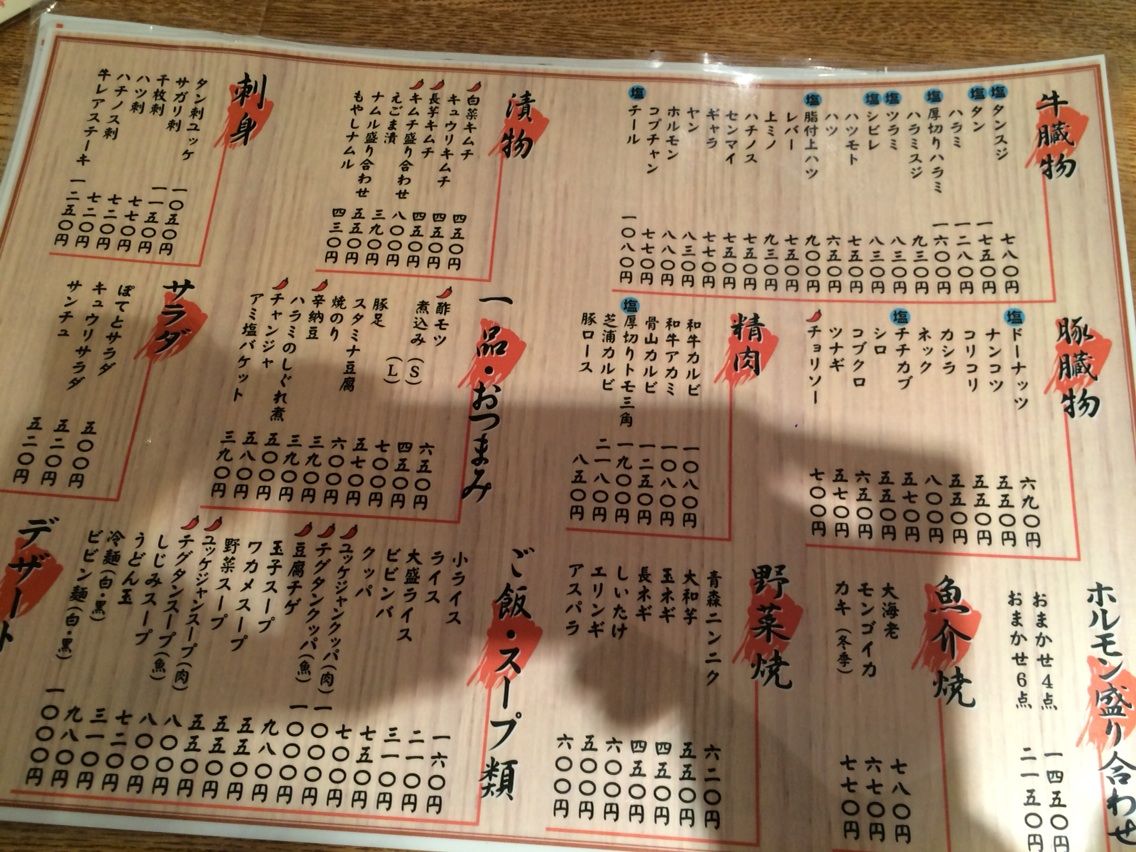 牛臓物
塩タンスジ 七八〇円
塩タン 一七五〇円
ハラミ 一二八〇円
塩厚切りハラミ 一六〇〇円
ハラミスジ 九三〇円
塩ツラミ 八三〇円
塩シビレ 八三〇円
ハツモト 七五〇円
ハツ 六五〇円
塩脂付上ハツ 九〇〇円
レバー 七五〇円
上ミノ 九三〇円
ハチノス 七五〇円
センマイ 七五〇円
ギャラ 七七〇円
ヤン 八三〇円
ホルモン 八八〇円
コプチャン 七七〇円
塩テール 一〇八〇円
漬物
白菜キムチ 四五〇円
キュウリキムチ 四五〇円
長芋キムチ 四五〇円
キムチ盛り合わせ 八〇〇円
えごま漬 三九〇円
ナムル盛り合わせ 五五〇円
もやしナムル 四三〇円
刺身
タン刺ユッケ 一〇五〇円
サガリ刺 一一五〇円
千枚刺 七七〇円
ハツ刺 七二〇円
ハチノス刺 七二〇円
牛レアステーキ 一二五〇円
豚臓物
塩ドーナッツ 六九〇円
ナンコツ 五五〇円
コリコリ 五五〇円
カシラ 五五〇円
ネック 八〇〇円
塩チチカブ 五七〇円
シロ 五五〇円
コブクロ 六五〇円
ツナギ 五七〇円
チョリソー 七〇〇円
精肉
和牛カルビ 一〇八〇円
和牛アカミ 一〇八〇円
骨山カルビ 一二五〇円
塩厚切りトモ三角 一九〇〇円
芝浦カルビ 二一八〇円
豚ロース 八五〇円
一品・おつまみ
酢モツ 六五〇円
煮込み(S) 四五〇円
(L) 七〇〇円
豚足 五七〇円
スタミナ豆腐 六〇〇円
焼のり 三九〇円
辛納豆 三九〇円
ハラミのしぐれ煮 五〇〇円
チャンジャ 五八〇円
アミ塩バケット 三九〇円
サラダ
ぽてとサラダ 五〇〇円
キュウリサラダ 五二〇円
サンチュ 五二〇円
ホルモン盛り合わせ
おまかせ4点 一四五〇円
おまかせ6点 二一五〇円
魚介焼
大海老 七八〇円
モンゴイカ 六七〇円
カキ(冬季) 七七〇円
野菜焼
青森ニンニク 六二〇円
大和芋 五五〇円
玉ネギ 四五〇円
長ネギ 四五〇円
しいたけ 六〇〇円
エリンギ 五〇〇円
アスパラ 六〇〇円
ご飯・スープ類
小ライス 一六〇円
ライス 二一〇円
大盛ライス 三一〇円
ビビンバ 七五〇円
クッパ 七〇〇円
ユッケジャンクッパ(肉) 一〇〇〇円
チグタンクッパ(魚) 一〇〇〇円
豆腐チゲ 九八〇円
玉子スープ 五五〇円
ワカメスープ 五五〇円
野菜スープ 五五〇円
ユッケジャンスープ(肉) 八〇〇円
チグタンスープ(魚) 八〇〇円
しじみスープ 七二〇円
うどん玉 三一〇円
冷麺(白・黒) 九八〇円
ビビン麺(白・黒) 一〇〇〇円
デザート